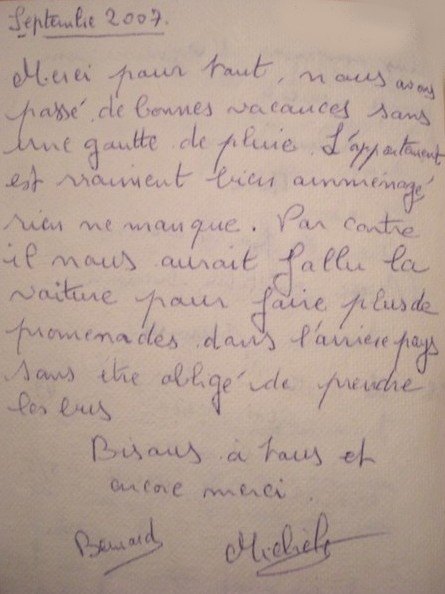 Septembre 2007.
Merci pour tout, nous avons
passé de bonnes vacances sans
une goutte de pluie. L'appartement
est vraiment bien ammenagé
rien ne manque. Par contre
il nous aurait fallu la
voiture pour faire plus de
promenades dans l'arrière pays
sans être obligé de prendre
les bus
Bisous à tous et
encore merci.
Bernard Michèle